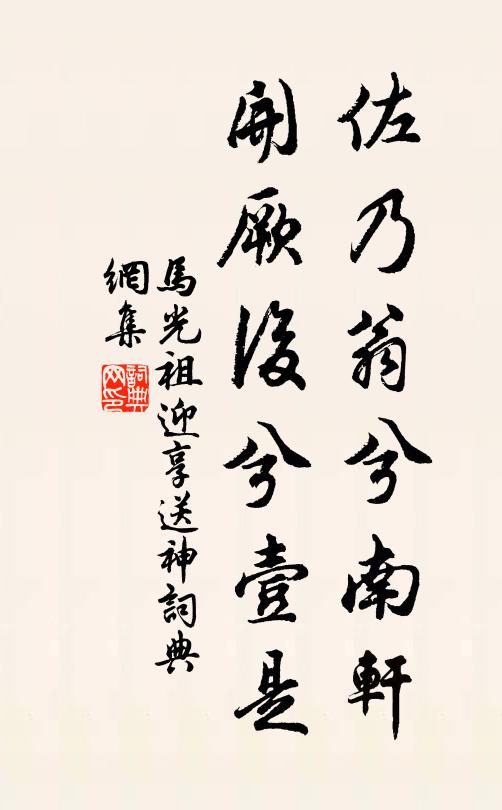 佐乃翁兮南軒
開厥後兮壹是
馬光祖迎享送神詞典
網集
詞典网印